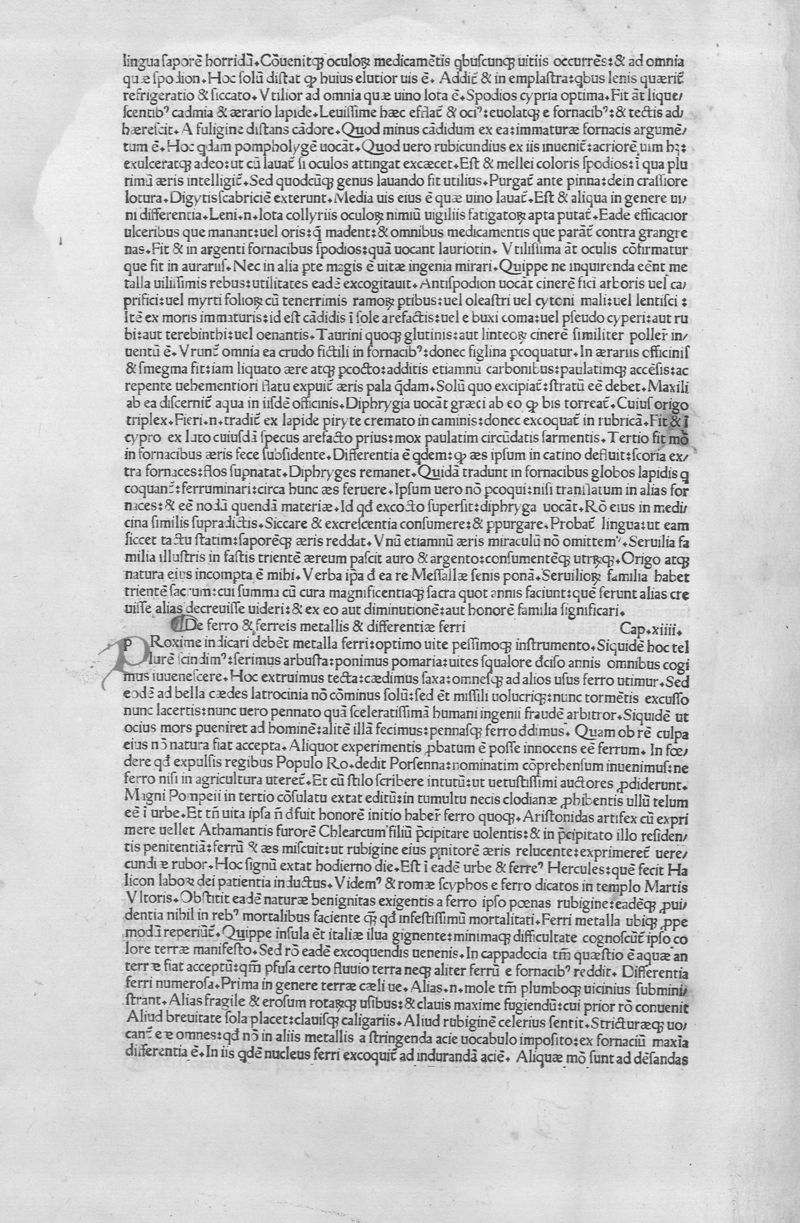 lingua saporē horridā. Cōuenitq; oculoꝝ medicamētis qbuscunq; uitiis occurrēs: & ad omnia
quæ spodion. Hoc solū distat ꝙ huius elutior uis ē. Addit᷑ & in emplastra: qbus lenis quærit᷑
refrigeratio & siccato. Vtilior ad omnia quæ uino lota ē. Spodios cypria optima. Fit āt lique/
scentibꝰ cadmia & ærario lapide. Leuissime hæc efflat᷑ & ociꝰ: euolatq; e fornacibꝰ: & tectis ad/
hærescit. A fuligine distans cādore. Quod minus cādidum ex ea: immaturæ fornacis argumē/
tum ē. Hoc qdam pompholygē uocāt. Quod uero rubicundius ex iis inuenit᷑: acriorē uim hʒ:
exulceratq; adeo: ut cū lauat᷑ si oculos attingat excæcet. Est & mellei coloris spodios: ī qua plu
rimū æris intelligit᷑. Sed quodcūq; genus lauando fit utilius. Purgat᷑ ante pinna: dein crassiore
lotura. Digytis scabriciē exterunt. Media uis eius ē quæ uino lauat᷑. Est & aliqua in genere ui/
ni differentia. Leni.n. lota collyriis oculoꝝ nimiū uigiliis fatigatoꝝ apta putat᷑. Eade efficacior
ulceribus que manant: uel oris: q̄ madent: & omnibus medicamentis que parāt᷑ contra grangre
nas. Fit & in argenti fornacibus spodios: quā uocant lauriotin. Vtilissima āt oculis cōfirmatur
que fit in aurariis. Nec in alia pte magis ē uitæ ingenia mirari. Quippe ne inquirenda eēnt me
talla uilissimis rebus: utilitates eadē excogitauit. Antispodion uocāt cinerē fici arboris uel ca/
prifici: uel myrti folioꝝ cū tenerrimis ramoꝝ ptibus: uel oleastri uel cyteni mali: uel lentisci:
Itē ex moris immaturis: id est cādidis ī sole arefactis: uel e buxi coma: uel pseudo cyperi: aut ru
bi: aut terebinthi: uel oenantis. Taurini quoq; glutinis: aut linteoꝝ cinerē similiter poller̄ in/
uentū ē. Vrunt᷑ omnia ea crudo fictili in fornacibꝰ: donec figlina ꝑcoquatur. In ærariis officinis
& smegma fit: iam liquato ære atq; ꝑcocto: additis etiamnū carbonibus: paulatimq; accēsis: ac
repente uehementiori flatu expuit᷑ æris pala q̄dam. Solū quo excipiat᷑: stratū eē debet. Maxili
ab ea discernit᷑ aqua in iisdē officinis. Diphrygia uocāt græci ab eo ꝙ bis torreat᷑. Cuius origo
triplex. Fieri.n. tradit᷑ ex lapide piryte cremato in caminis: donec excoquat᷑ in rubricā. Fit & ī
cypro ex luto cuiusdā specus arefacto prius: mox paulatim circūdatis sarmentis. Tertio fit mō
in fornacibus æris fece subsidente. Differentia ē qdem: ꝙ æs ipsum in catino defluit: scoria ex/
tra fornaces: flos supnatat. Diphryges remanet. Quidā tradunt in fornacibus globos lapidis q
coquant᷑: ferruminari: circa hunc æs feruere. Ipsum uero nō ꝑcoqui: nisi translatum in alias for
naces: & eē nodū quendā materiæ. Id qd excocto superfit: diphryga uocāt. Rō eius in medi/
cina similis supradictis. Siccare & excrescentia consumere: & ꝑpurgare. Probat᷑ lingua: ut eam
siccet tactu statim: saporēq; æris reddat. Vnū etiamnū æris miraculū nō omittemꝰ. Seruilia fa
milia illustris in fastis trientē æreum pascit auro & argento: consumentēq; utrūq;. Origo atq;
natura eius incompta ē mihi. Verba ip̄a d ea re Messallæ senis ponā. Seruilioꝝ familia habet
trientē sacrum: cui summa cū cura magnificentiaq; sacra quot annis faciunt: quē ferunt alias cre
uisse alias decreuisse uideri: & ex eo aut diminutionē: aut honorē familia significari.
De ferro & ferreis metallis & differentiæ ferri Cap. xiiii.
PRoxime indicari debēt metalla ferri: optimo uite pessimoq; instrumento. Siquidē hoc tel
lurē scindimꝰ: serimus arbusta: ponimus pomaria: uites squalore dciso annis omnibus cogi
mus iuuenescere. Hoc extruimus tecta: cædimus saxa: omnesq; ad alios usus ferro utimur. Sed
eodē ad bella cædes latrocinia nō cōminus solū: sed ēt missili uolucriq;: nunc tormētis excusso
nunc lacertis: nunc uero pennato quā sceleratissimā humani ingenii fraudē arbitror. Siquidē ut
ocius mors pueniret ad hominē: alitē illā fecimus: pennasq; ferro ddimus. Quam ob rē culpa
eius nō natura fiat accepta. Aliquot experimentis ꝓbatum ē posse innocens eē ferrum. In fœ/
dere qd expulsis regibus Populo Ro. dedit Porsenna: nominatim cōprehensum inuenimus: ne
ferro nisi in agricultura uteret᷑. Et cū stilo scribere intutū: ut uetustissimi auctores ꝓdiderunt.
Magni Pompeii in tertio cōsulatu extat editū: in tumultu necis clodianæ ꝓhibentis ullū telum
eē ī urbe. Et tn̄ uita ipsa n̄ dfuit honorē initio haber̄ ferro quoq;. Aristonidas artifex cū expri
mere uellet Athamantis furorē Chlearcum filiū p̄cipitare uolentis: & in p̄cipitato illo residen/
tis penitentiā: ferrū & æs miscuit: ut rubigine eius ꝑ nitorē æris relucente: exprimeret᷑ uere/
cundiæ rubor. Hoc signū extat hodierno die. Est ī eadē urbe & ferreꝰ Hercules: quē fecit Ha
licon laboꝝ dei patientia inductus. Videmꝰ & romæ scyphos e ferro dicatos in templo Martis
Vltoris. Obstitit eadē naturæ benignitas exigentis a ferro ipso pœnas rubigine: eadēq; ꝓui/
dentia nihil in rebꝰ mortalibus faciente q̄ qd infestissimū mortalitati. Ferri metalla ubiq; ꝓpe
modū reperiūt᷑. Quippe insula ēt italiæ ilua gignente: minimaq; difficultate cognoscūt᷑ ipso co
lore terræ manifesto. Sed rō eadē excoquendis uenenis. In cappadocia tm̄ quæstio ē aquæ an
terræ fiat acceptū: qm̄ pfusa certo fluuio terra neq; aliter ferrū e fornacibꝰ reddit. Differentia
ferri numerosa. Prima in genere terræ cæli ue. Alias.n. mole tm̄ plumboq; uicinius submini/
strant. Alias fragile & erosum rotaꝝq; usibus: & clauis maxime fugiendū: cui prior rō conuenit
Aliud breuitate sola placet: clauisq; caligariis. Aliud rubiginē celerius sentit. Stricturæq; uo/
cant᷑ eæ omnes: qd nō in aliis metallis a stringenda acie uocabulo imposito: ex fornaciū maxīa
differentia ē. In iis qdē nucleus ferri excoquit᷑ ad indurandā aciē. Aliquæ mō sunt ad dēsandas